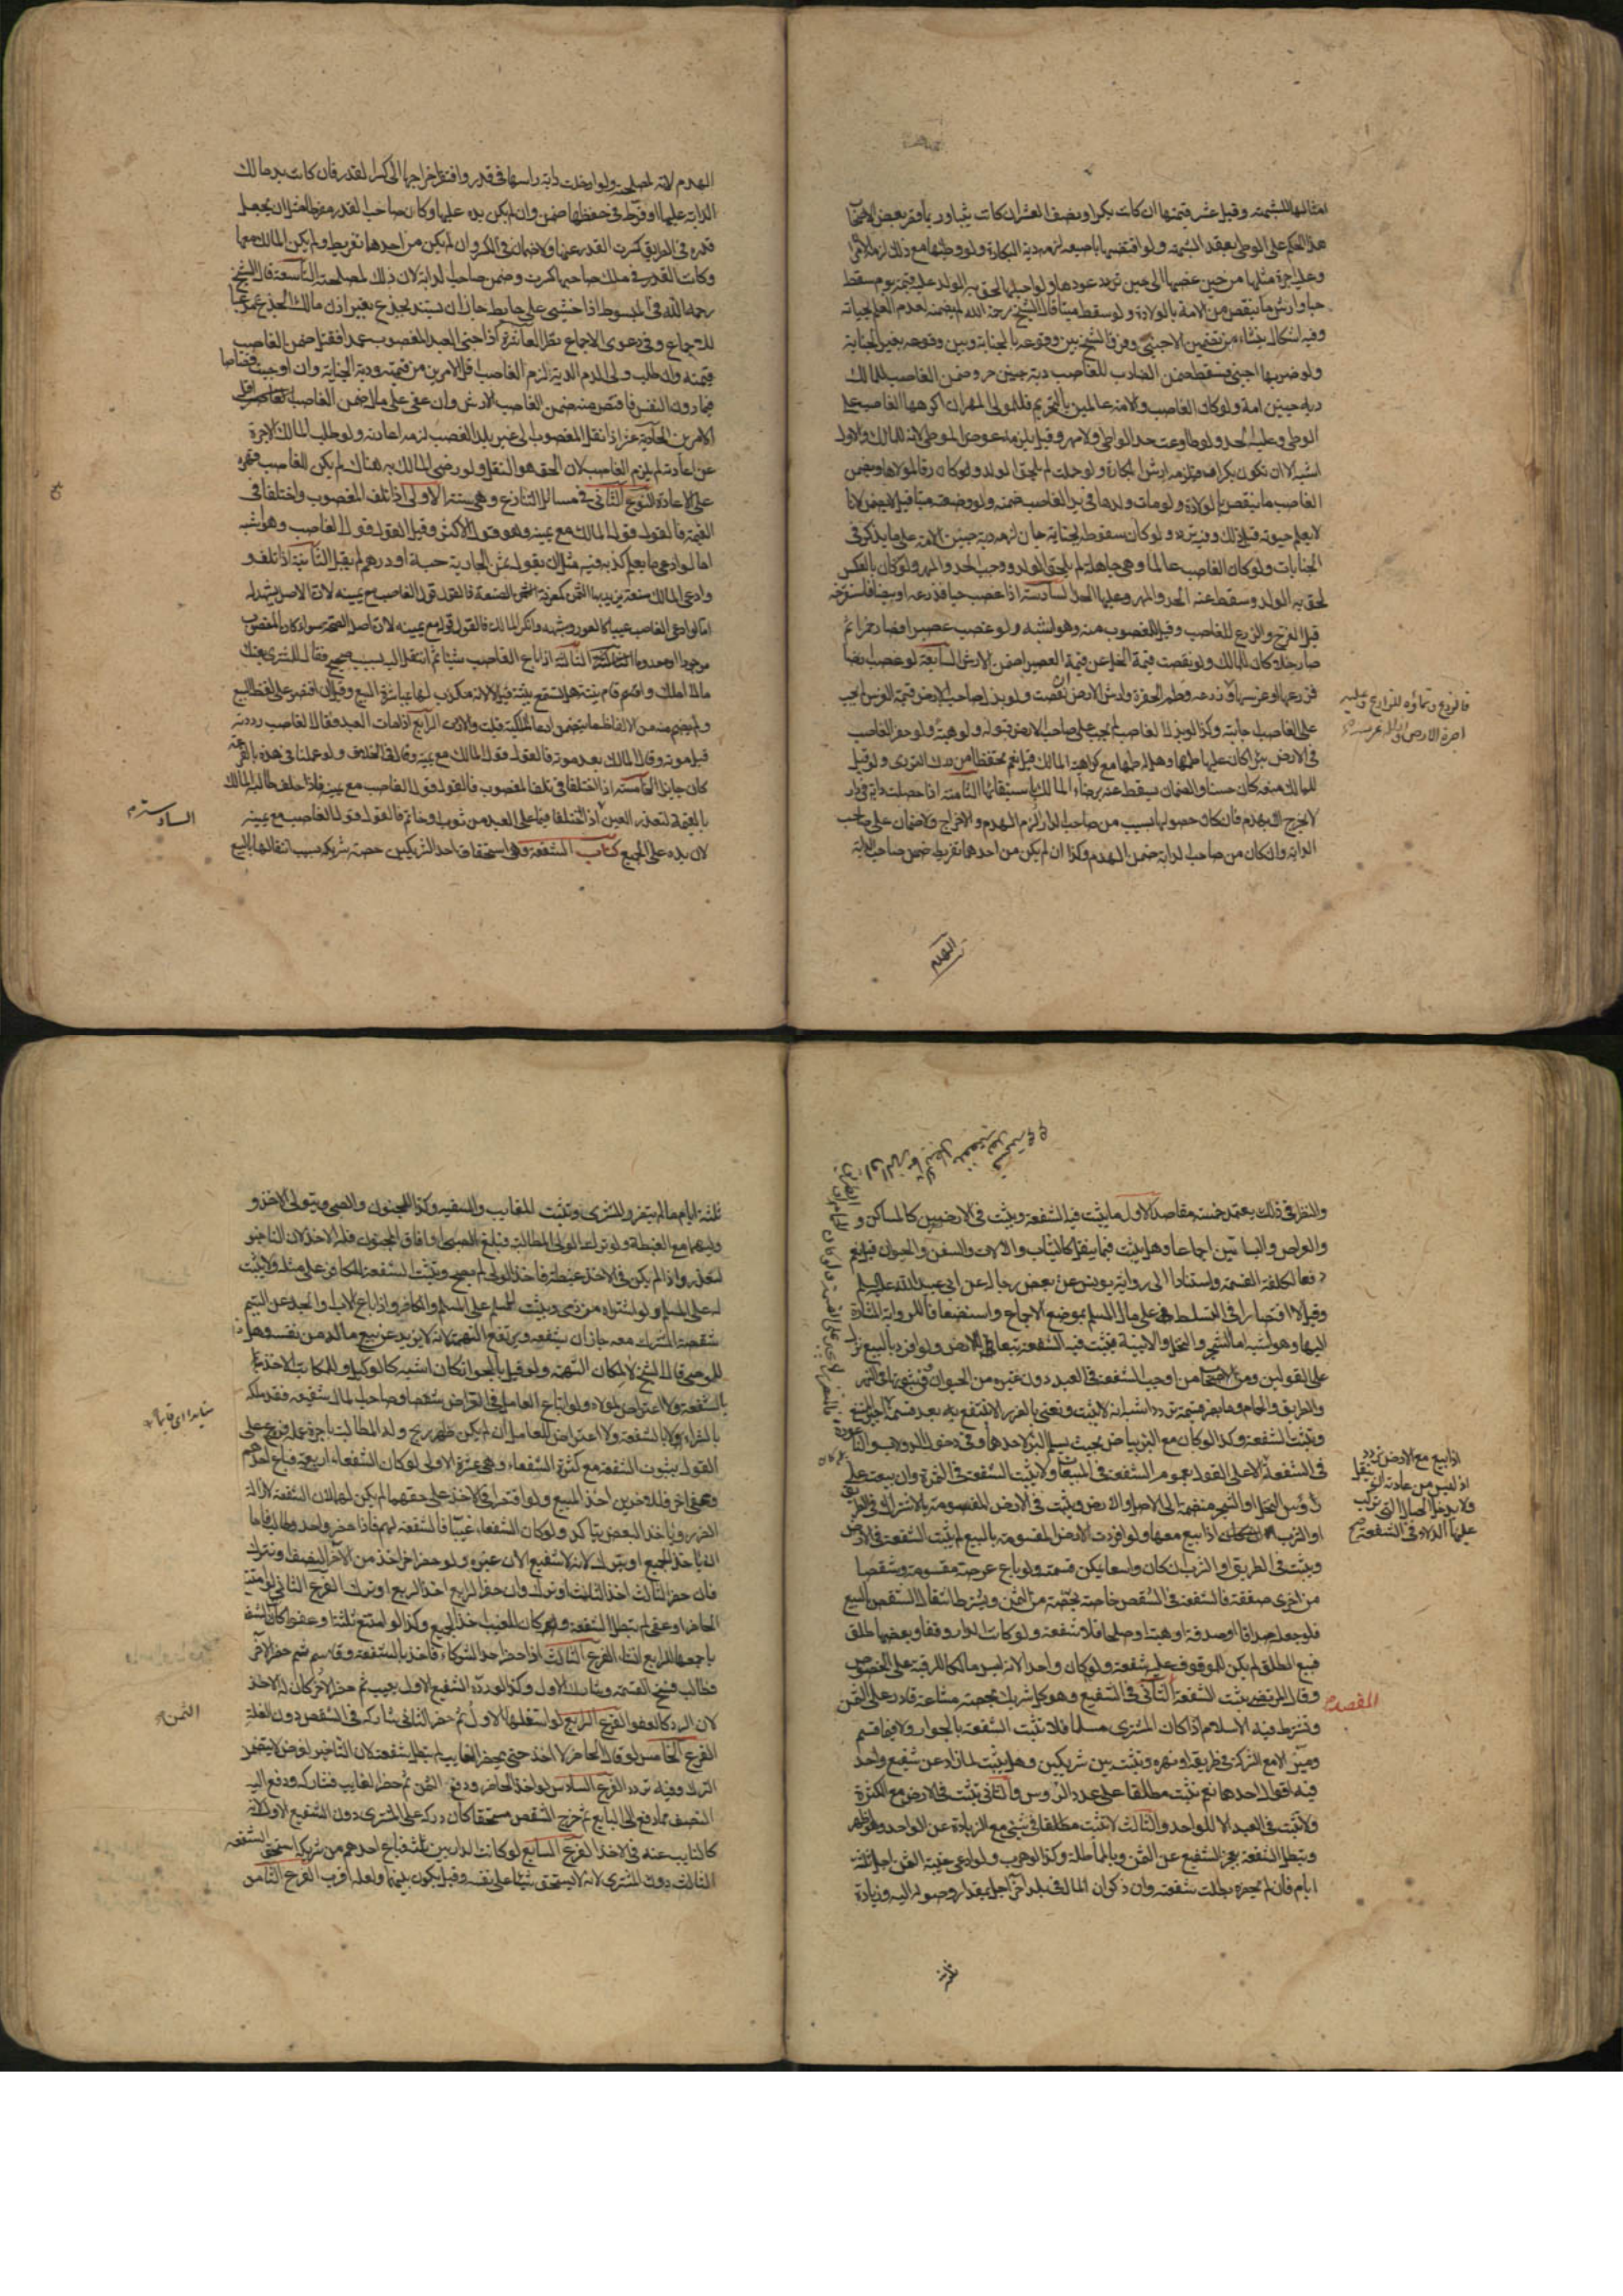 امثالها للشبهة وقيل عشر قيمتها ان كانت بكرا ونصف العشر ان كانت ثيبا وربما قصر بعض الاصحاب
هذا الحكم على الوطى بعقد الشبهة ولو افتضها باصبعه لزمه دية البكارة ولو وطئها مع ذلك لزمه الامران
وعليه اجرة مثلها من حين غصبها الى حين عودها ولو احبلها لحق به الولد وعليه قيمته يوم سقط
حيا وارش ما ينقص من الامة بالولادة ولو سقط ميتا قال الشيخ رحمة الله لم يضمنه لعدم العلم بحياته
وفيه اشكال ينشاء من تضمين الاجنبي وفرق الشيخ بين وقوعه بالجناية وبين وقوعه بغير الجناية
ولو ضربها اجنبي فسقط ضمن الضارب للغاصب دية جنين حر وضمن الغاصب للمالك
دية جنين امة ولو كان الغاصب والامة عالمين بالتحريم فللمولى المهر ان اكرهها الغاصب على
الوطى وعليه الحد ولو طاوعته حد الواطى ولا مهر وقيل يلزمه عوض الوطى لانه للمالك والاول
اشبه الا ان تكون بكرا فيلزمه ارش البكارة ولو حملت لم يلحق به الولد ولو كان رقا لمولاها ويضمن
الغاصب ما ينقص بالولادة ولو مات ولدها في يد الغاصب ضمنه ولو وضعته ميتا قيل لا يضمن لانا
لا يعلم حيوته قبل ذلك وفيه تردد ولو كان سقوطه بجناية جان لزمه دية جنين الامة على ما يذكر في
الجنايات ولو كان الغاصب عالما وهي جاهلة لم يلحق الولد ووجب الحد والمهر ولو كان بالعكس
لحق به الولد وسقط عنه الحد والمهر وعليها الحد السادسة اذا غصب حبا فزرعه او بيضا فاستفرخه
قيل الفرخ والزرع للغاصب وقيل للمغصوب منه وهو اشبه ولو غصب عصيرا فصار خمرا ثم
صار خلا كان للمالك ولو نقصت قيمة الخل عن قيمة العصير ضمن الارش السابعة لو غصب ارضا
فزرعها او غرسها وقلعه وطم الحفرة وارش الارض ان نقصت ولو بذل صاحب الارض قيمة الغرس لم يجب
على الغاصب اجابته وكذا لو بذل الغاصب لم يجب على صاحب الارض قبوله ولو هبة ولو حفر الغاصب
في الارض بئرا كان عليه طمها وهل له طمها مع كراهية المالك قيل نعم تحفظا من درك التردى ولو قيل
للمالك منعه كان حسنا والضمان يسقط عنه برضاء المالك باستبقائها الثامنة اذا حصلت دابة في دار
لا تخرج الا بهدم فان كان حصولها بسبب من صاحب الدار الزم الهدم والاخراج ولا ضمان على صاحب
الدابة وان كان من صاحب الدابة ضمن الهدم وكذا ان لم يكن من احدهما تفريط ضمن صاحب الدابة
فالزرع ونماؤه للزارع وعليه
اجرة الارض
الهدم
الهدم لانه لمصلحته ولو ادخلت دابة راسها في قدر وافتقر اخراجها الى كسر القدر فان كانت يد مالك
الدابة عليها او فرط في حفظها ضمن وان لم يكن يده عليها وكان صاحب القدر مفرطا مثل ان يجعل
قدره في الطريق كسرت القدر عنها ولا ضمان في الكسر وان لم يكن من احدهما تفريط ولم يكن المالك معها
وكانت القدر في ملك صاحبها كسرت وضمن صاحب الدابة لان ذلك لمصلحته التاسعة قال الشيخ
رحمه الله في المبسوط اذا خشى على حايط جاز ان يستند بجذع بغير اذن مالك الجذع مدعيا
للاجماع وفي دعوى الاجماع نظر العاشرة اذا جنى العبد المغصوب عمدا فقتل ضمن الغاصب
قيمته وان طلب ولى الدم الدية لزم الغاصب اقل الامرين من قيمته ودية الجناية وان اوجبت قصاصا
فيما دون النفس فاقتص منه ضمن الغاصب الارش وان عفى على مال ضمن الغاصب اقل
الامرين الحادية عشر اذا نقل المغصوب الى غير بلد الغصب لزمه اعادته ولو طلب المالك الاجرة
عن اعادته لم يلزم الغاصب لان الحق هو النقل ولو رضى المالك به هناك لم يكن للغاصب قهره
على الاعادة النوع الثاني في مسايل التنازع وهي ستة الاولى اذا تلف المغصوب واختلفا في
القيمة فالقول قول المالك مع يمينه وهو قول الاكثر وقيل القول قول الغاصب وهو اشبه
اما لو ادعى ما يعلم كذبه فيه مثل ان يقول ثمن الجارية حبة او درهم لم يقبل الثانية اذا تلف و
وادعى المالك صفة يزيد بها الثمن كمعرفة الصنعة فالقول قول الغاصب مع يمينه لان الاصل يشهد له
اما لو ادعى الغاصب عيبا كالعور وشبهه وانكر المالك فالقول قوله مع يمينه لان الاصل الصحة سواء كان المغصوب
موجودا او معدوما الثالثة اذا باع الغاصب شيئا ثم انتقل اليه بسبب صحيح فقال للمشترى بعتك
ما لا املك واقام بينة هل تسمع بينته قيل لا لانه مكذب لها بمباشرة البيع وقيل ان اقتصر على لفظ البيع
ولم يضم اليه من الالفاظ ما يتضمن ادعاء الملكية قبلت والا ردت الرابع اذا مات العبد فقال الغاصب رددته
قبل موته وقال المالك بعد موته فالقول قول المالك مع يمينه وقال في الخلاف ولو عملنا في هذه بالقرعة
كان جايزا الخامسة اذا اختلفا في تلف المغصوب فالقول قول الغاصب مع يمينه فاذا حلف طالبه المالك
بالقيمة لتعذر العين اذا اختلفا فيما على العبد من ثوب او خاتم فالقول قول الغاصب مع يمينه
لان يده على الجميع كتاب الشفعة وهي استحقاق احد الشريكين حصة شريكه بسبب انتقالها بالبيع
السادسة
والنظر في ذلك يعتمد خمسة مقاصد الاول ما يثبت فيه الشفعة ويثبت في الارضين كالمساكن و
والعراص والبساتين اجماعا وهل يثبت فيما ينقل كالثياب والالات والسفن والحيوان قيل نعم
دفعا لكلفة القسمة واستنادا الى رواية يونس عن بعض رجاله عن ابي عبد الله عليه السلم
وقيل لا اقتصارا في التسلط على مال المسلم بموضع الاجماع واستضعافا للرواية المشار
اليها وهو اشبه اما الشجر والنخل والابنية فيثبت فيه الشفعة تبعا للارض ولو افرد بالبيع نزل
على القولين ومن الاصحاب من اوجب الشفعة في العبد دون غيره من الحيوان وفي ثبوتها في النهر
والطريق والحمام وما يضر قسمته تردد اشبهه انها لا يثبت ونعني بالضرر الا ينتفع به بعد قسمته
وتثبت الشفعة وكذا لو كان مع البئر بياض بحيث يسلم البئر لاحدهما وفي دخول الدولاب والناعورة
في الشفعة الا على القول بعموم الشفعة في المبيعات ولا يثبت الشفعة في الثمرة وان بيعت على
رؤس النخل او الشجر منضمة الى الاصل والارض ويثبت في الارض المقسومة بالاشتراك في الطريق
او الشرب اذا بيع معها ولو افردت الارض المقسومة بالبيع لم يثبت الشفعة في الارض
ويثبت في الطريق او الشرب ان كان واسعا يمكن قسمته ولو باع عرصة مقسومة وشقصا
من اخرى صفقة فالشفعة في الشقص خاصة بحصته من الثمن ويشترط انتقال الشقص بالبيع
فلو جعل صداقا او صدقة او هبة او صلحا فلا شفعة ولو كانت الدار وقفا وبعضها طلق
فبيع الطلق لم يكن للموقوف عليه شفعة ولو كان واحدا لانه ليس مالكا للرقبة على الخصوص
وقال المرتضى يثبت الشفعة الثاني في الشفيع وهو كل شريك بحصة مشاعة قادر على الثمن
ويشترط فيه الاسلام اذا كان المشترى مسلما فلا يثبت الشفعة بالجوار ولا فيما قسم
وميز الا مع الشركة في طريقه او نهره وتثبت بين شريكين وهل يثبت لما زاد عن شفيع واحد
فيه اقوال احدها نعم يثبت مطلقا على عدد الرؤس والثاني يثبت في الارض مع الكثرة
ولا يثبت في العبد الا للواحد والثالث لا يثبت مطلقا في شيء مع الزيادة عن الواحد وهو اظهر
ويبطل الشفعة بعجز الشفيع عن الثمن وبالمماطلة وكذا لو هرب ولو ادعى غيبة الثمن اجل ثلثة
ايام فان لم يحضره بطلت شفعته وان ذكر ان المال في بلد اخر اجل بمقدار وصوله اليه وزيادة
اذا بيع مع الارض تردد
اذ ليس من عادته ان ينقل
ولا يدخل الحبال التي تركب
عليها الدلاء في الشفعة
المقصد
ثلثة
ثلثة ايام ما لم يتضرر المشترى وتثبت للغايب والسفيه وكذا للمجنون والصبي ويتولى الاخذ و
وليهما مع الغبطة ولو ترك الولى المطالبة فبلغ الصبى او افاق المجنون فله الاخذ لان التاخير
لعذر واذا لم يكن في الاخذ غبطة فاخذ الولى لم يصح وتثبت الشفعة للكافر على مثله ولا يثبت
له على المسلم ولو اشتراه من ذمى ويثبت للمسلم على المسلم والكافر واذا باع الاب والجد عن اليتيم
شقصه المشترك معه جاز ان يشفعه ويرتفع التهمة لانه لا يزيد عن بيع ماله من نفسه وهل
للوصى قال الشيخ لا لمكان التهمة ولو قيل بالجواز كان اشبه كالوكيل وللمكاتب الاخذ
بالشفعة ولا اعتراض لمولاه ولو ابتاع العامل في القراض شقصا وصاحب المال شفيعه فقد ملكه
بالشراء لا بالشفعة ولا اعتراض للعامل ان لم يكن ظهر ربح وله المطالبة باجرة عمله فروع على
القول بثبوت الشفعة مع كثرة الشفعاء وهي عشرة الاولى لو كان الشفعاء اربعة فباع احدهم
وعفى اخر فللاخرين اخذ المبيع ولو اقتصرا في الاخذ على حقهما لم يكن لهما لان الشفعة لازالة
الضرر وباخذ البعض يتاكد ولو كان الشفعاء غيبا فالشفعة لهم فاذا حضر واحد وطالب فاما
ان ياخذ الجميع او يترك لانه لا شفيع الان غيره ولو حضر اخر اخذ من الاخر النصف او يترك
فان حضر الثالث اخذ الثلث او ترك وان حضر الرابع اخذ الربع او ترك الفرع الثاني لو امتنع
الحاضر او عفى لم يبطل الشفعة وكان للغيب اخذ الجميع وكذا لو امتنع ثلثة او عفوا كانت الشفعة
باجمعها للرابع ان شاء الفرع الثالث اذا حضر احد الشركاء فاخذ بالشفعة وقاسم ثم حضر الآخر
وطالب فسخ القسمة وشارك الاول وكذا لو رده الشفيع الاول بعيب ثم حضر الآخر كان له الاخذ
لان الرد كالعفو الفرع الرابع لو استغلها الاول ثم حضر الثاني شاركه في الشقص دون الغلة
الفرع الخامس لو قال الحاضر لا اخذ حتى يحضر الغايب لم يبطل شفعته لان التاخير لغرض لا يتضمن
الترك وفيه تردد الفرع السادس لو اخذ الحاضر ودفع الثمن ثم حضر الغايب فشاركه ودفع اليه
النصف مما دفع الى البايع ثم خرج الشقص مستحقا كان دركه على المشترى دون الشفيع الاول لانه
كالنايب عنه في الاخذ الفرع السابع لو كانت الدار بين ثلثة فباع احدهم من شريكه استحق الشفعة
الثالث دون المشترى لانه لا يستحق شيئا على نفسه وقيل يكون بينهما ولعله اقرب الفرع الثامن
الثمن